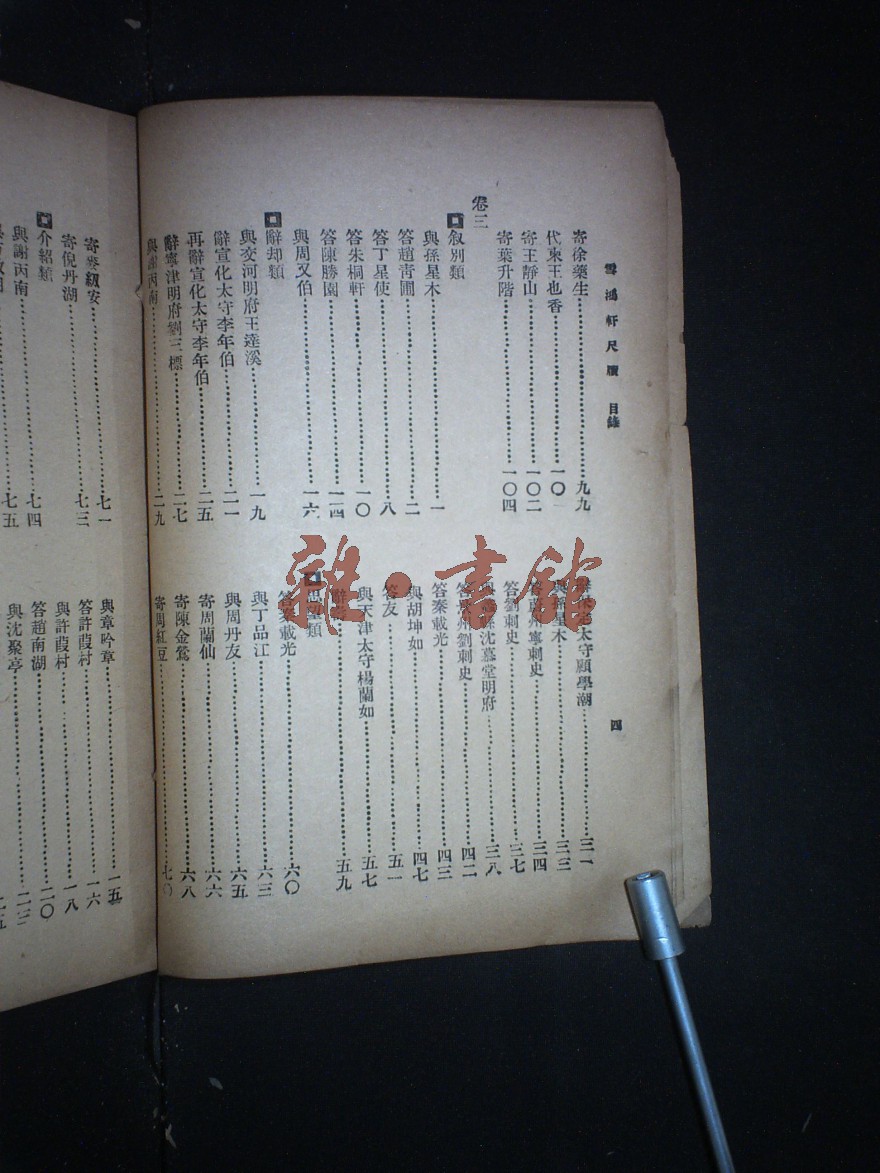 雪鴻軒尺牘 目錄
四
寄徐藥生……九九
代柬王也香……一〇一
寄王靜山……一〇二
寄葉升階……一〇四
卷三
敘別類
與孫星木……一
答趙青圃……二
答丁星使……八
答朱桐軒……一〇
答陳勝園……一四
與周又伯……一六
辭却類
與交河明府王達溪……一九
辭宣化太守李年伯……二一
再辭宣化太守李年伯……二五
辭寧津明府劉三標……二七
與謝丙南……二九
太守顧學潮……三一
與孫星木……三三
州寧刺史……三四
答劉刺史……三七
沈慕堂明府……三八
州劉刺史……四二
答秦載光……四三
與胡坤如……四七
答友……五一
與天津太守楊蘭如……五七
辭……五九
思望類
答秦載光……六〇
與丁品江……六三
與周丹友……六五
寄周蘭仙……六六
寄陳金鶯……六八
寄周紅豆……七〇
寄 紉安……七一
寄倪丹湖……七三
介紹類
與謝丙南……七四
七五
與章吟章……一五
答許葭村……一六
與許葭村……一八
答趙南湖……二〇
與沈聚亭……二三
雜·書館